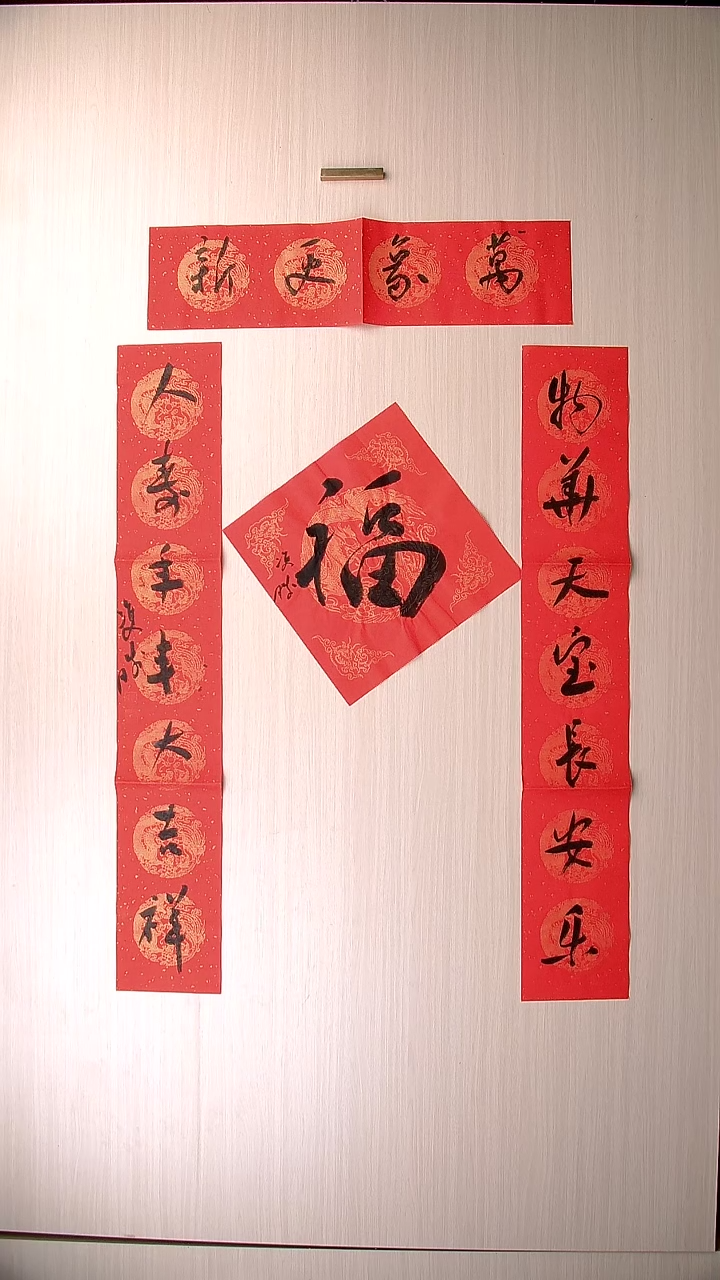 萬象更新
物華天宝長安乐
人寿年丰大吉祥
福